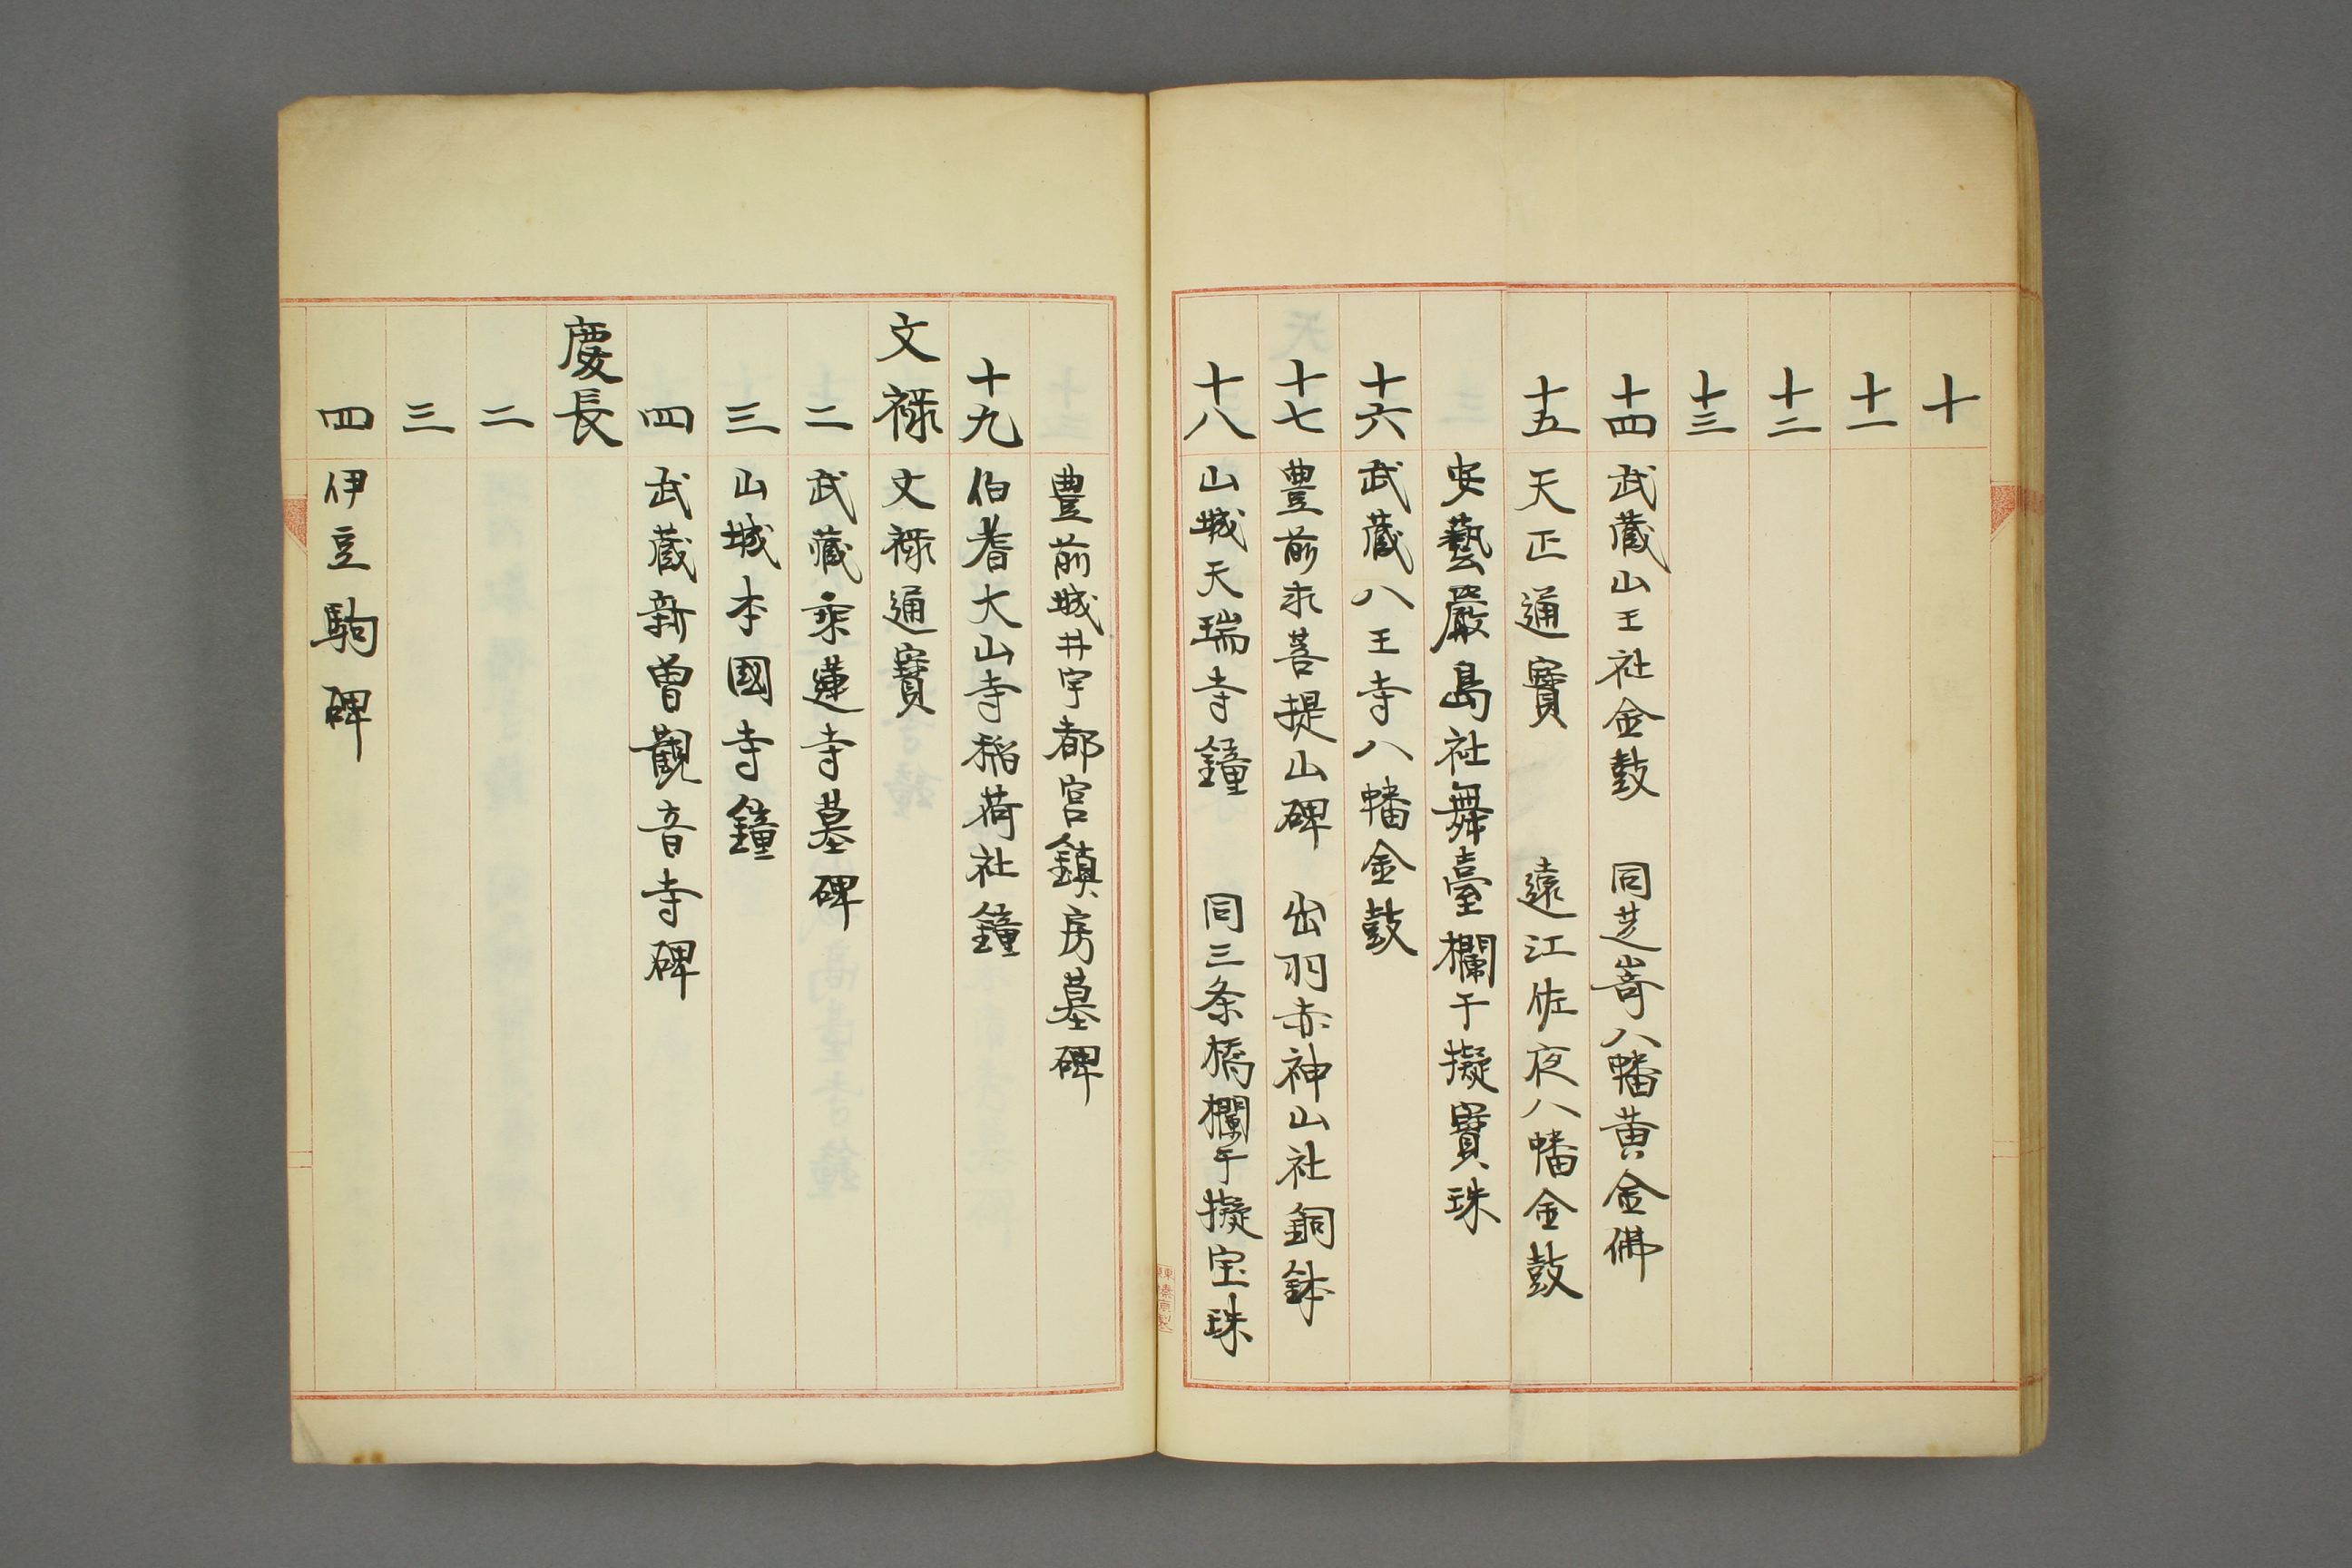 十
十一
十二
十三
十四 武蔵山王社金鼓 同芝嵜八幡黄金佛
十五 天正通寳 遠江佐夜八幡金鼓
安藝嚴島社舞臺欄干擬寳珠
十六 武蔵八王寺八幡金鼓
十七 豊前求菩提山碑 出羽赤神山社銅鉢
十八 山城天瑞寺鐘 同三条橋欄干擬宝珠
豊前城井宇都宮鎮房墓碑
十九 伯耆大山寺稲荷社鐘
文禄 文禄通寳
二 武蔵乗蓮寺墓碑
三 山城本國寺鐘
四 武蔵新曽観音寺碑
慶長
二
三
四 伊豆駒碑